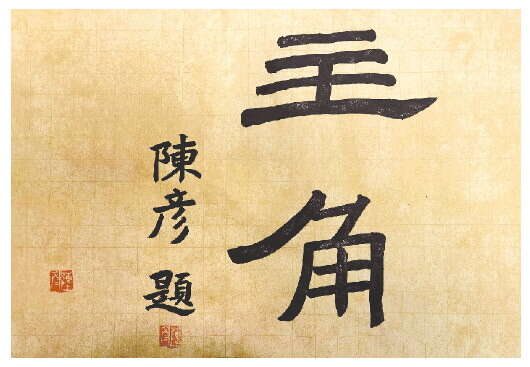 主角
陳彦題